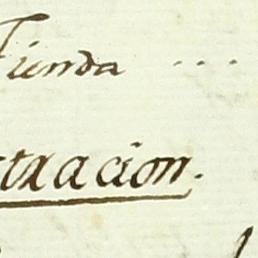 Tienda ...
tracion.